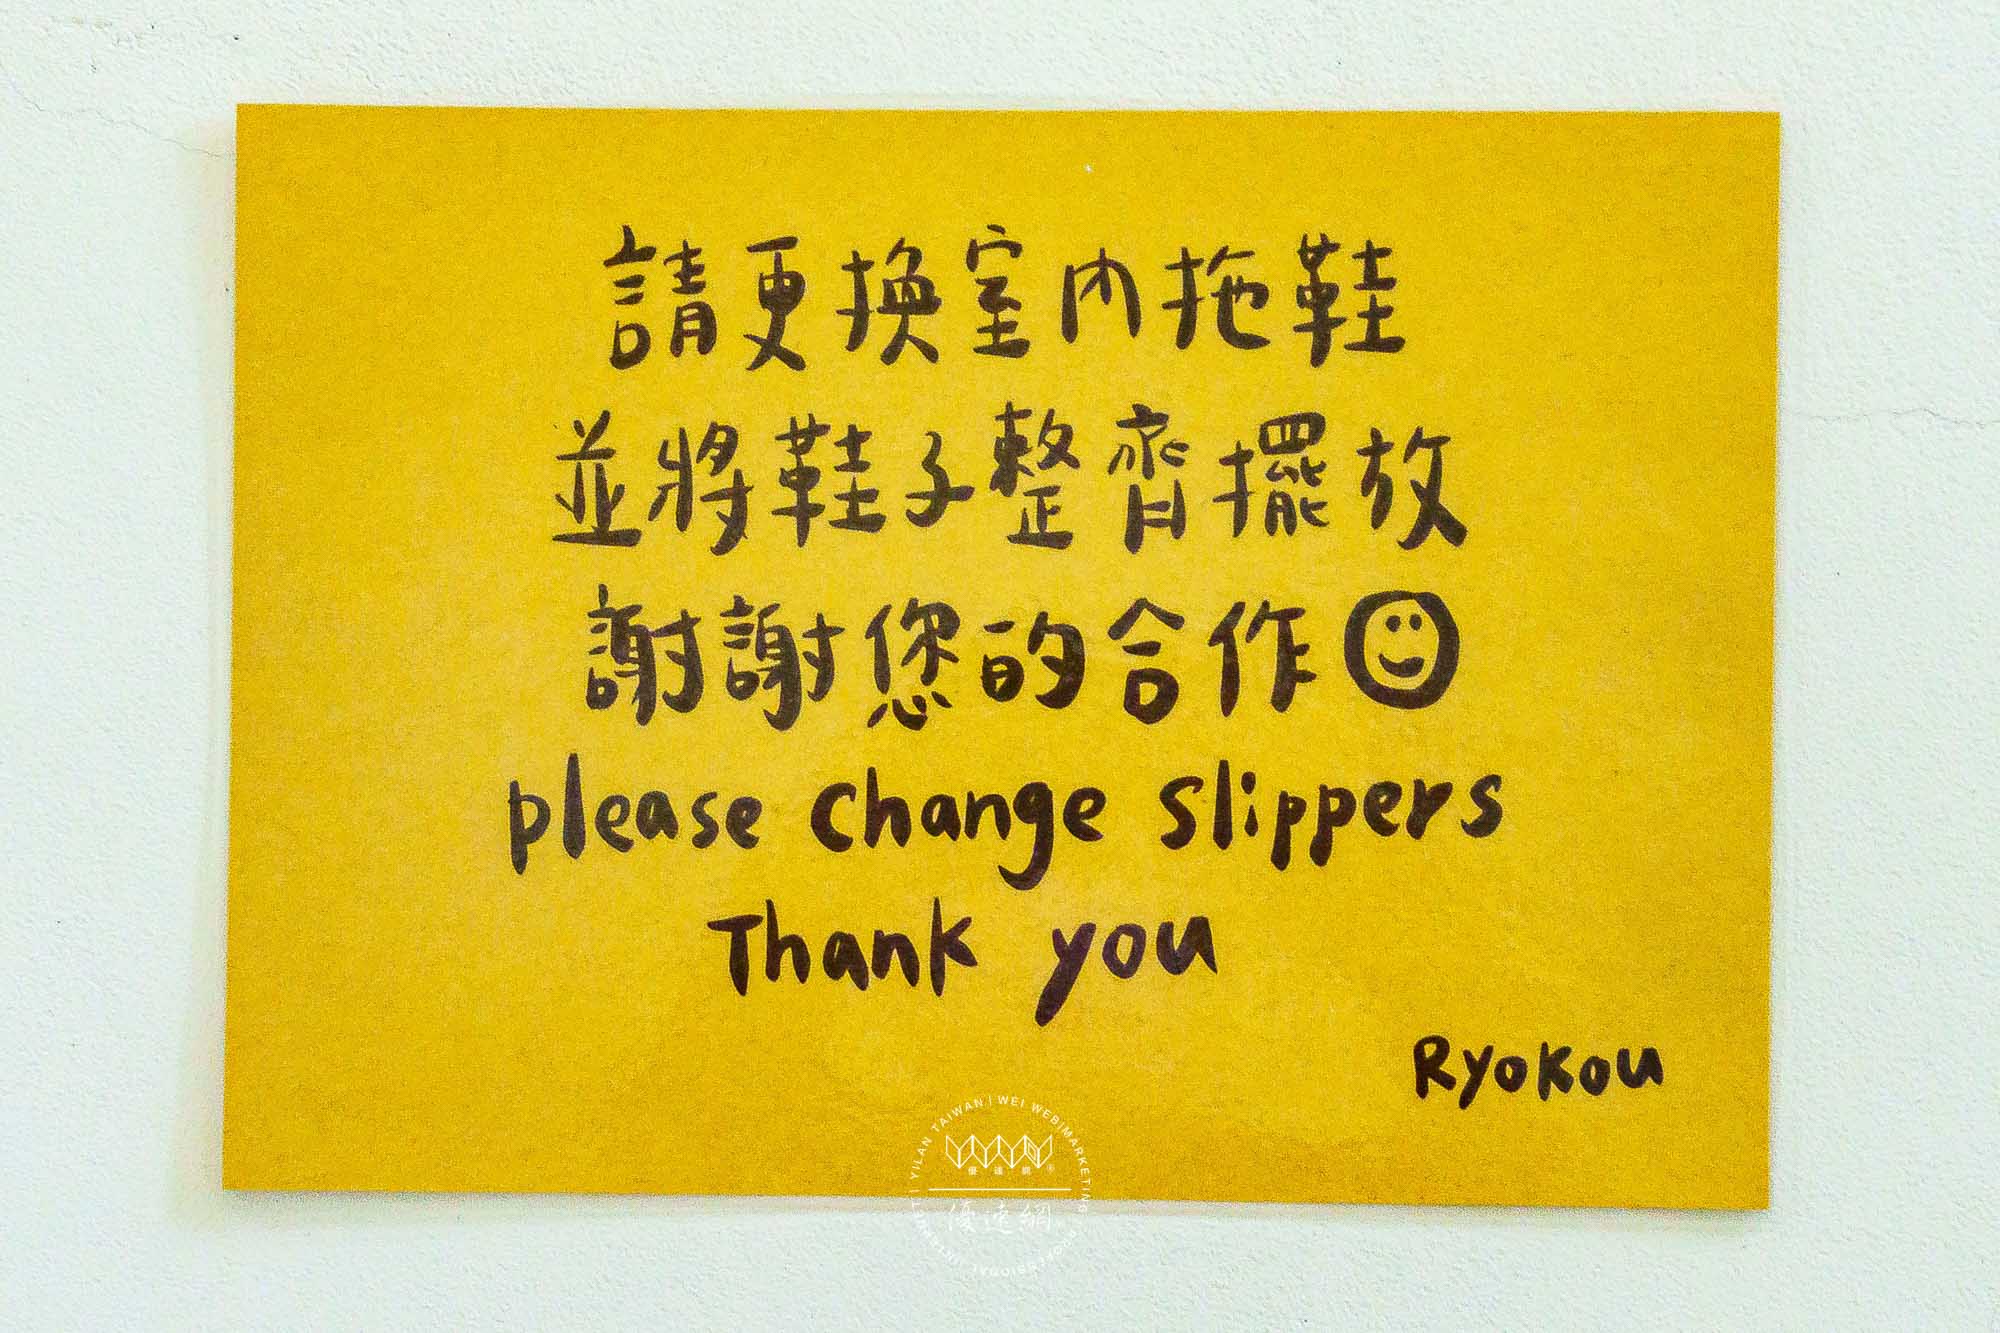 請更換室內拖鞋
並將鞋子整齊擺放
謝謝您的合作
please change slippers
Thank you
RyoKou
YILAN TAIWAN | WEI WEB|MARKETING PROFESSIONAL INTERNET |
優遠網®
優遠網